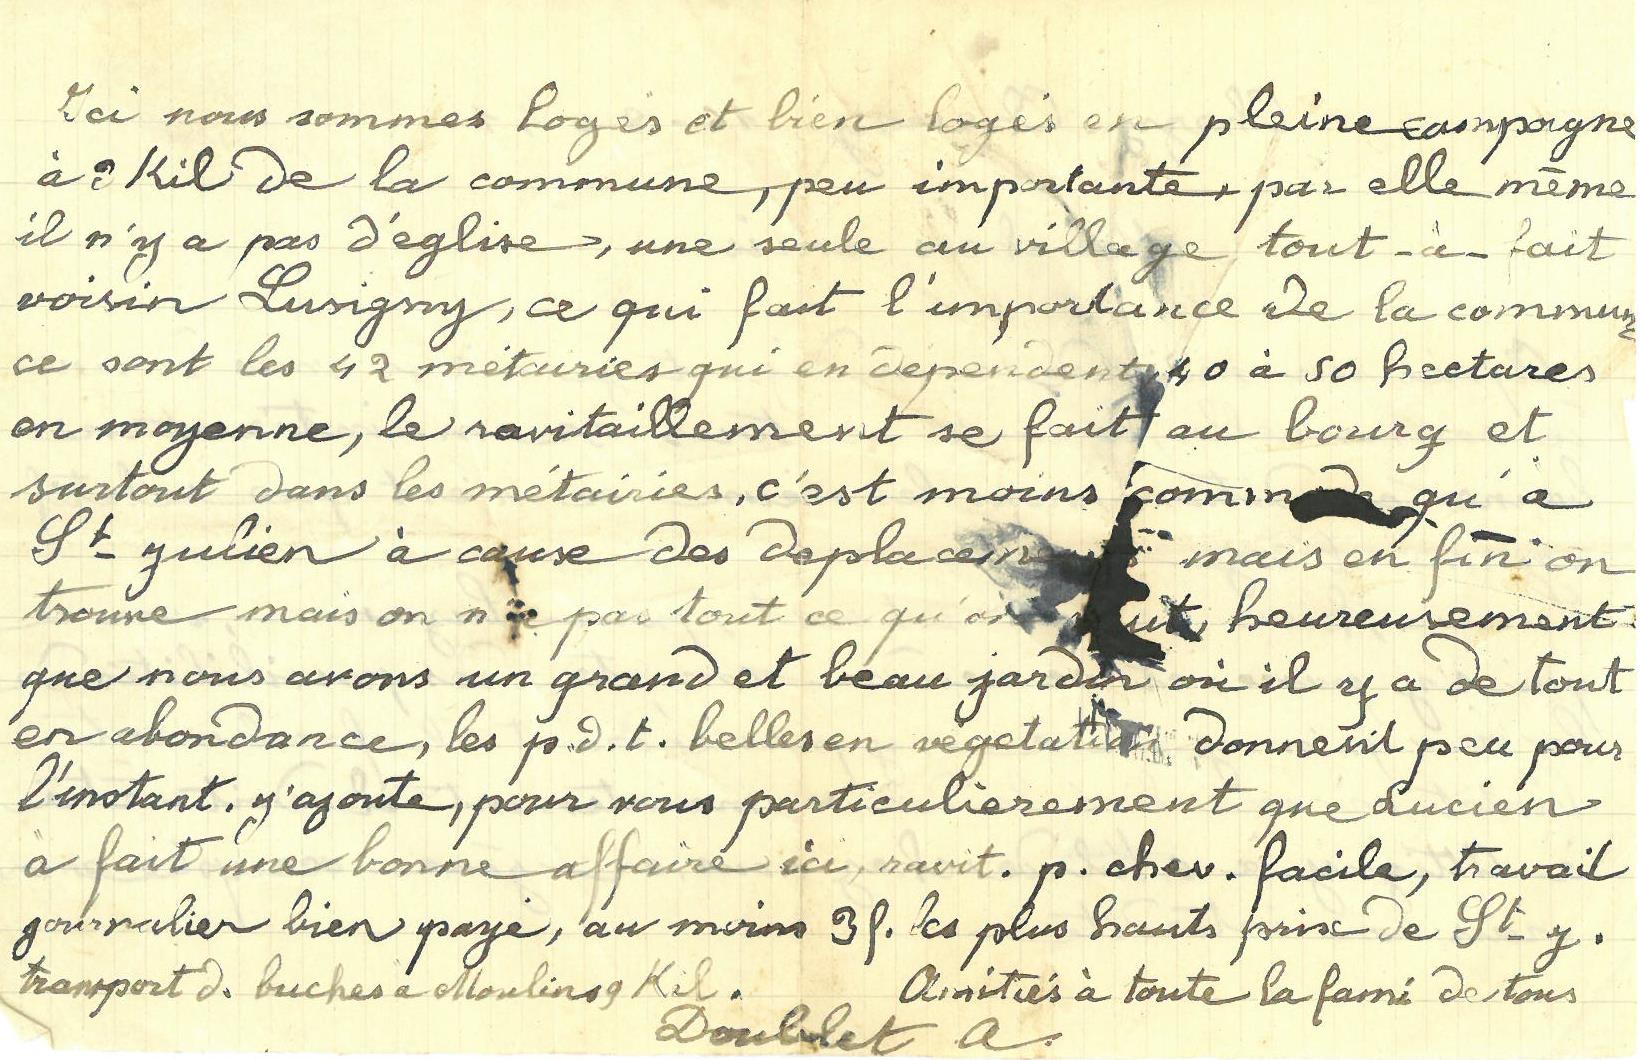 Ici nous sommes logés et bien logés en pleine campagne
à Kil de la commune, peu importante, par elle même
il n'y a pas d'église, une seule au village tout-à-fait
voisin Lusigny, ce qui fait l'importance de la commune
ce sont les 42 métairies qui en dépendent, 40 à 50 hectares
en moyenne, le ravitaillement se fait au bourg et
surtout dans les métairies, c'est moins commode qu'à
St Julien à cause des deplacements mais en fin on
trouve mais on n'a pas tout ce qu'on veut, heureusement
que nous avons un grand et beau jardin où il y a de tout
en abondance, les p.d.t. belles en végetation donnent peu pour
l'instant. j'ajoute, pour vous particulierement que Lucien
à fait une bonne affaire ici, ravit. p. chev. facile, travail
journalier bien payé, au moins 3f. les plus hauts prix de St J.
transport d. buches à Moulins 9 Kil. Amitiés à toute la fami de tous
Doublet A.